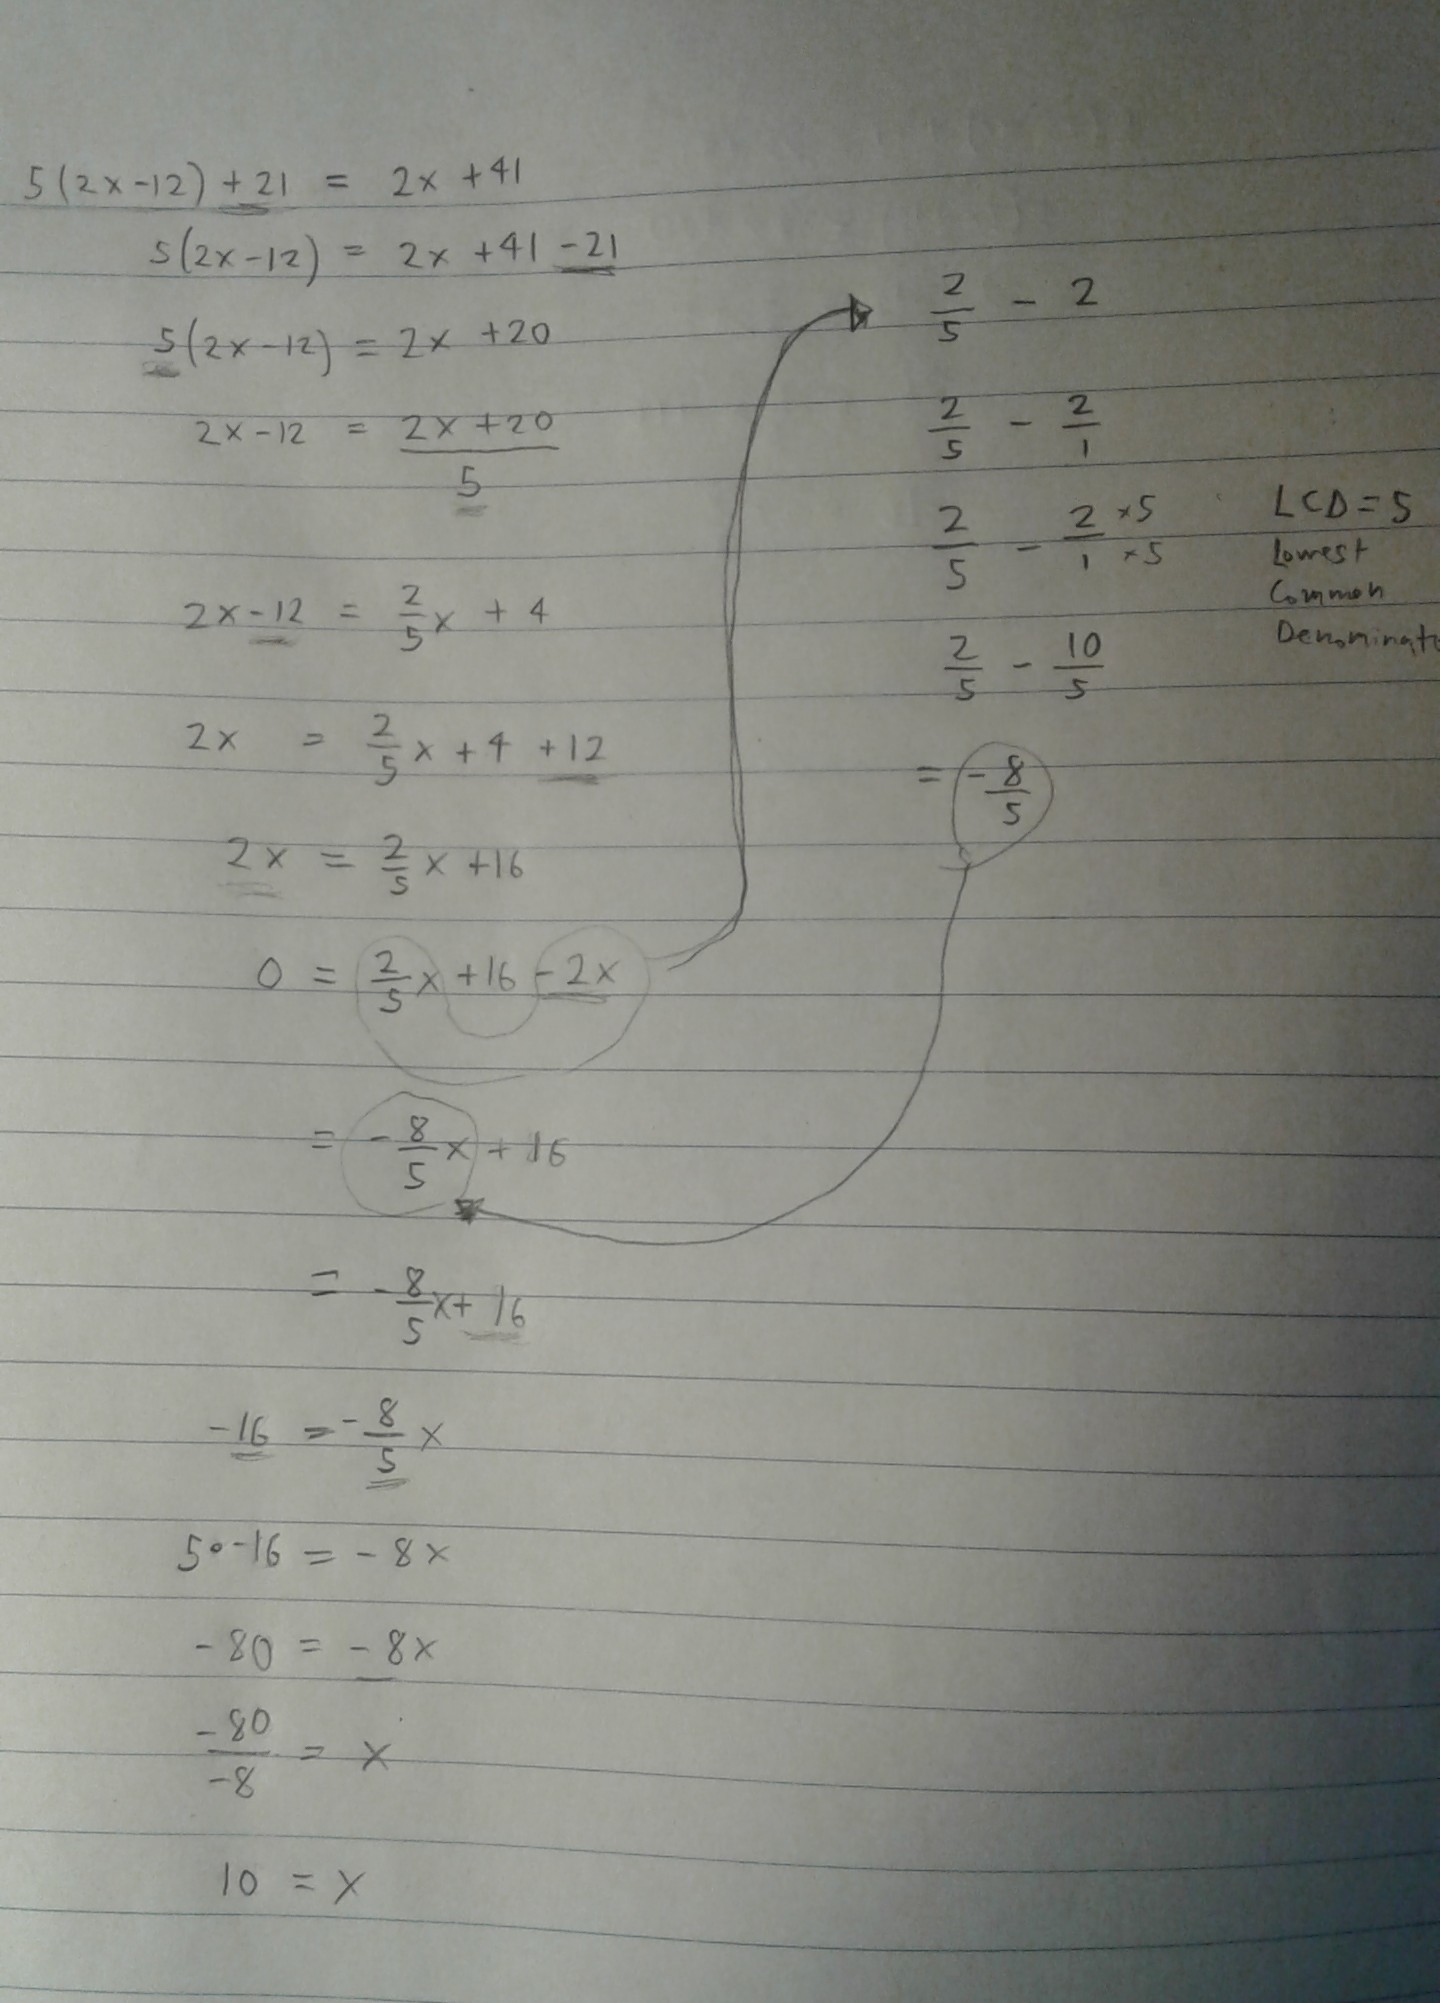 5(2x-12) +21 = 2x +41
5(2x-12) = 2x +41 -21
5(2x-12) = 2x +20
2x-12 = 2x +20
5
2x-12 = 2/5 x + 4
2x = 2/5 x + 4 +12
2x = 2/5 x +16
0 = 2/5 x +16 -2x
= -8/5 x + 16
= -8/5 x + 16
-16 = -8/5 x
5•-16 = -8x
-80 = -8x
-80/-8 = x
10 = x
2/5 - 2
2/5 - 2/1
2/5 - 2/1 ×5 ×5
2/5 - 10/5
= -8/5
LCD = 5
Lowest
Common
Denominato